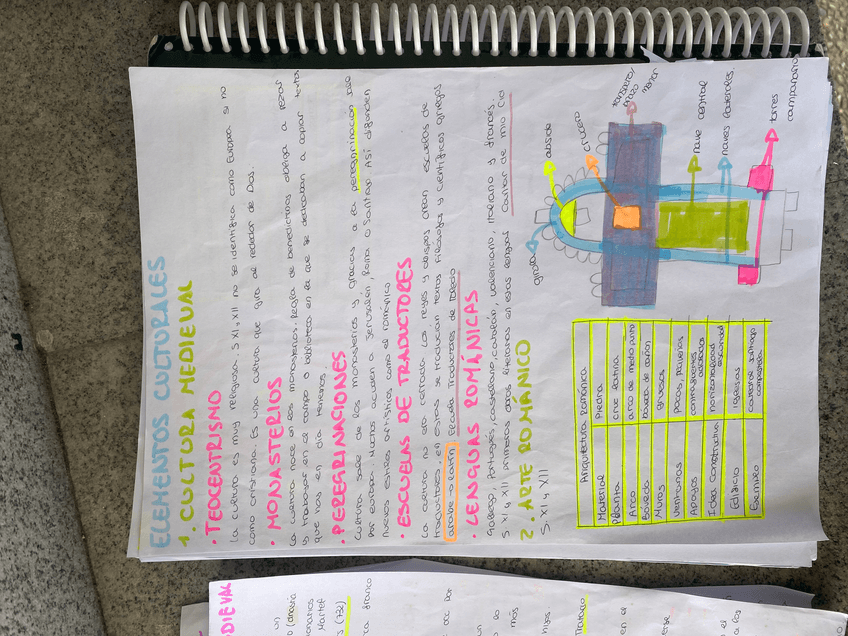 ELEMENTOS CULTURALES
1. CULTURA MEDIEVAL
• TEOCENTRISMO
La cultura es muy religiosa. S XI y XII no se identifica como Europa si no
como cristiana. Es una cultura que gira alrededor de Dios.
• MONASTERIOS
La cultura nace en los monasterios. Regla de benedictinos obliga a rezar
y trabajar en el campo o biblioteca en la que se dedicaban a copiar textos
que hoy en día tenemos.
• PEREGRINACIONES
Cultura sale de los monasterios y gracias a la peregrinación
por europa. Muchos acuden a Jerusalén, Roma o Santiago. Así difunden
nuevos estilos artísticos como el románico
• ESCUELAS DE TRADUCTORES
La cultura no era cerrada. Los reyes y obispos crean escuelas de
traductores, en estas se traducían textos filósofos y científicos griegos
árabe → latín Escuela Traductores de Toledo
• LENGUAS ROMÁNICAS
Gallego, Portugués, castellano, catalán, valenciano, italiano y francés.
S XI y XII primeras obras literarias en estas lenguas Cantar de mio Cid
2. ARTE ROMÁNICO
S. XI y XII
Arquitectura románica
Material Piedra
Planta cruz latina
Arco arco de medio punto
Bóveda bóveda de cañón
Muros gruesos
Ventanas pocas, pequeñas
Apoyos contrafuertes
Idea Constructiva horizontalidad
Edificio iglesias
Ejemplo catedral santiago
compostela
girola
abside
crucero
transepto/
brazo
menor
nave central
naves laterales.
torres
campanario
DIEVAL
(732)